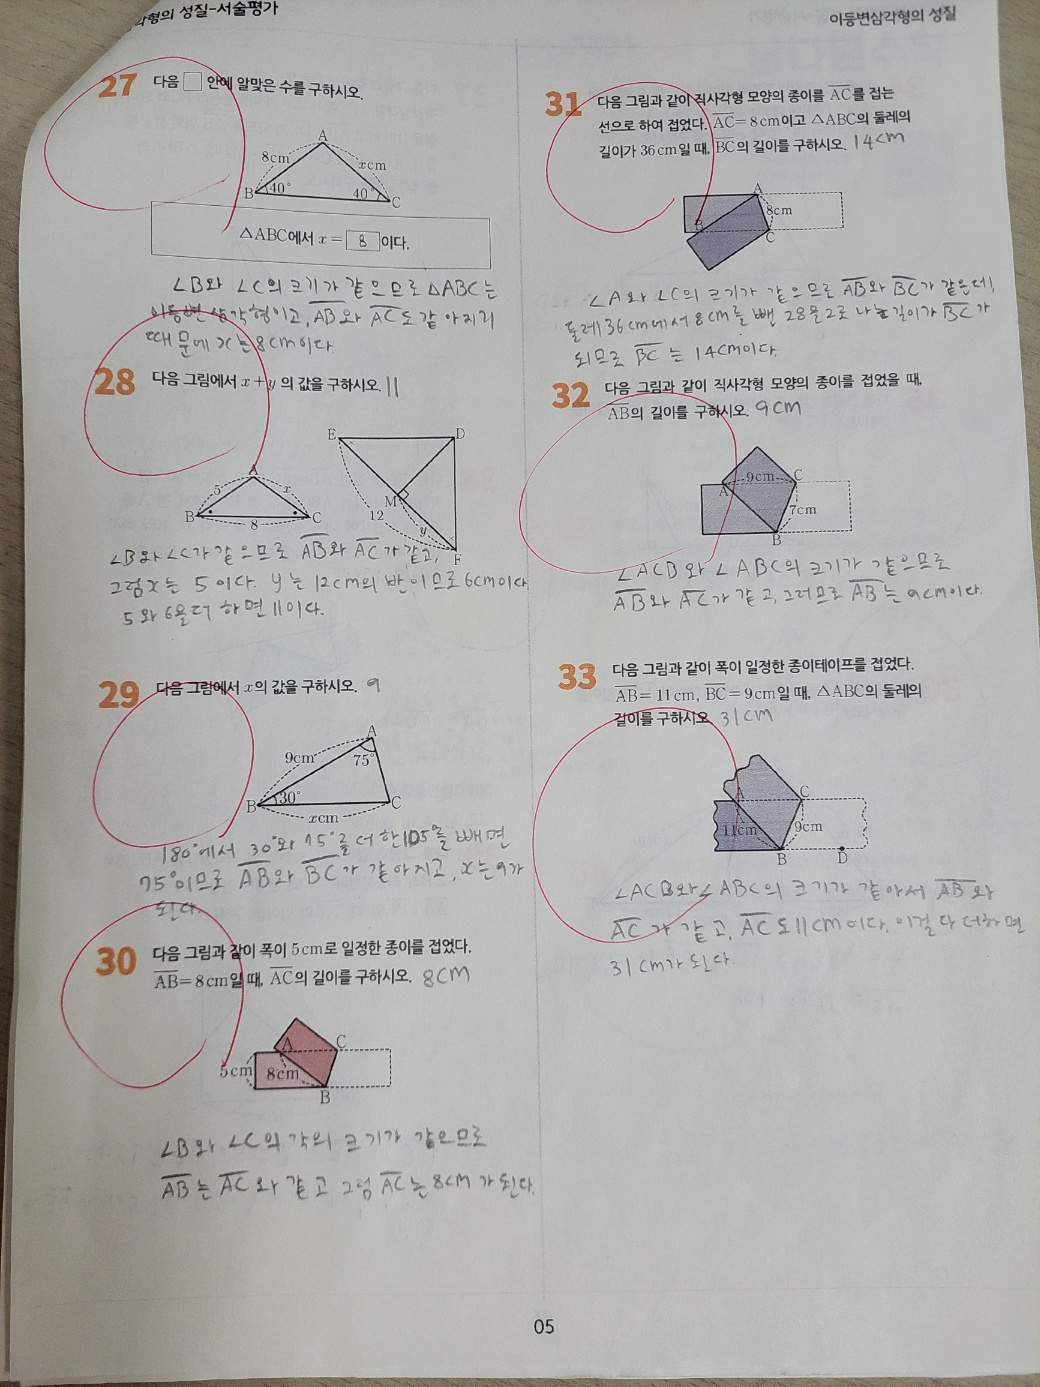 각형의 성질-서술평가
이등변삼각형의 성질
27 다음 □ 안에 알맞은 수를 구하시오.
A
8cm
xcm
B 40° 40° C
△ABC에서 x= 8 이다.
∠B와 ∠C의 크기가 같으므로 △ABC는
이등변 삼각형이고, AB와 AC도 같아지기
때문에 x는 8cm이다.
28 다음 그림에서 x+y 의 값을 구하시오. 11
E D
A
5 x
B C
8
M
12
y
F
∠B와 ∠C가 같으므로 AB와 AC가 같고,
그럼 x는 5이다. y는 12cm의 반이므로 6cm이다
5와 6을 더하면 11이다.
29 다음 그림에서 x의 값을 구하시오. 9
A
9cm
75°
B 30° C
xcm
180°에서 30°와 75°를 더한 105°를 빼면
75°이므로 AB와 BC가 같아지고, x는 9가
된다.
30 다음 그림과 같이 폭이 5cm로 일정한 종이를 접었다.
AB=8cm일 때, AC의 길이를 구하시오. 8cm
A C
5cm 8cm
B
∠B와 ∠C의 각의 크기가 같으므로
AB는 AC와 같고 그럼 AC는 8cm가 된다.
31 다음 그림과 같이 직사각형 모양의 종이를 AC를 접는
선으로 하여 접었다. AC=8cm이고 △ABC의 둘레의
길이가 36cm일 때, BC의 길이를 구하시오. 14cm
A
8cm
B
C
∠A와 ∠C의 크기가 같으므로 AB와 BC가 같은데,
둘레 36cm에서 8cm를 뺀 28을 2로 나눈 길이가 BC가
되므로 BC는 14cm이다.
32 다음 그림과 같이 직사각형 모양의 종이를 접었을 때,
AB의 길이를 구하시오. 9cm
A 9cm C
7cm
B
∠ACB와 ∠ABC의 크기가 같으므로
AB와 AC가 같고, 그러므로 AB는 9cm이다.
33 다음 그림과 같이 폭이 일정한 종이테이프를 접었다.
AB=11cm, BC=9cm일 때, △ABC의 둘레의
길이를 구하시오. 31cm
A C
11cm 9cm
B D
∠ACB와 ∠ABC의 크기가 같아서 AB와
AC가 같고, AC도 11cm이다. 이걸 다 더하면
31cm가 된다.
05